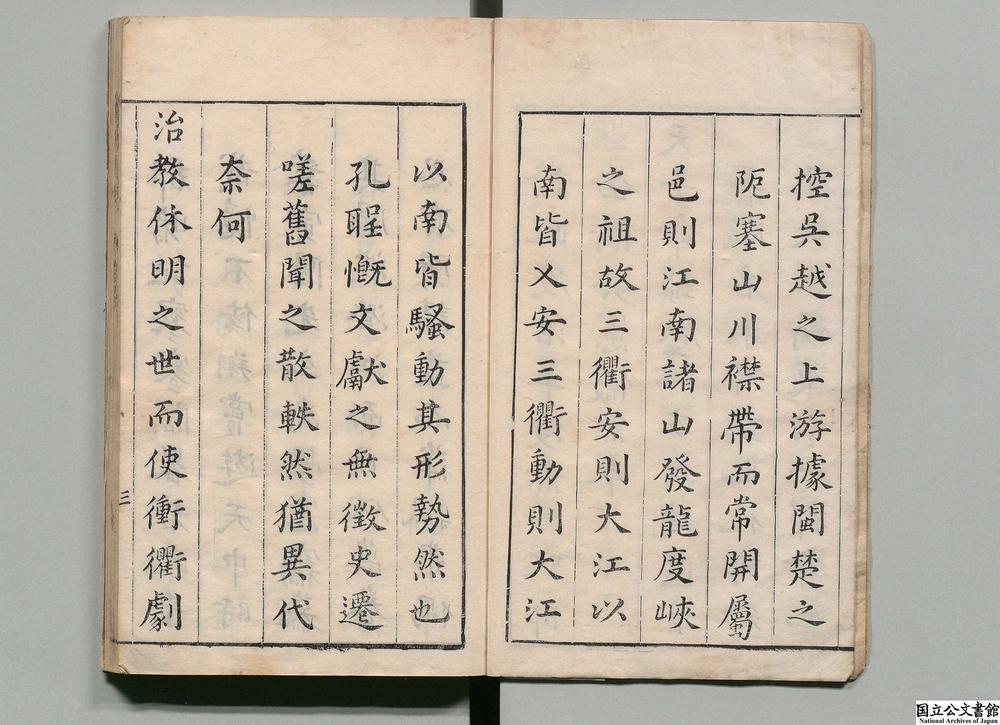 控呉越之上游據閩楚之
阨塞山川襟帶而常開屬
邑則江南諸山發龍度峽
之祖故三衢安則大江以
南皆乂安三衢動則大江
以南皆騷動其形勢然也
孔聖慨文獻之無徵史遷
嗟舊聞之散軼然猶異代
奈何
治教休明之世而使衝衢劇
三
国立公文書館
National Archives of Japan